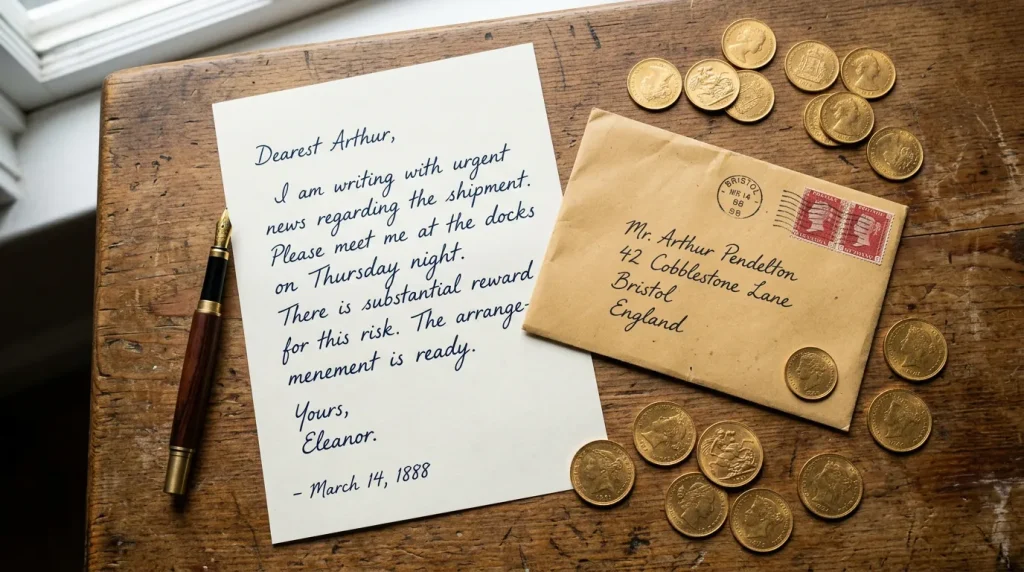 Dearest Arthur,
I am writing with urgent
news regarding the shipment.
Please meet me at the docks
on Thursday night.
There is substantial reward
for this risk. The arrange-
menement is ready.
Yours,
Eleanor.
- March 14, 1888
BRISTOL
14
88
98
Mr. Arthur Pendelton
42 Cobblestone Lane
Bristol
England